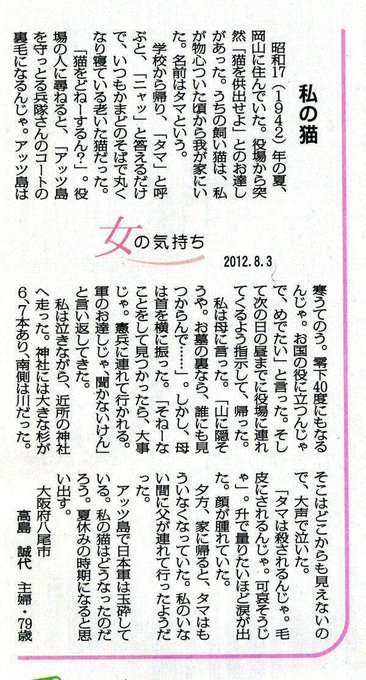 私の猫
昭和17（1942）年の夏、
岡山に住んでいた。役場から突
然「猫を供出せよ」とのお達し
があった。うちの飼い猫は、私
が物心ついた頃から我が家にい
た。名前はタマという。
学校から帰り、「タマ」と呼
ぶと、「ニャッ」と答えるだけ
で、いつもかまどのそばで丸く
なり寝ている老いた猫だった。
「猫をどねーするん？」。役
場の人に尋ねると、「アッツ島
を守っとる兵隊さんのコートの
裏毛になるんじゃ。アッツ島は
女の気持ち
2012.8.3
寒うてのう。零下40度にもなる
んじゃ。お国の役に立つんじゃ
で、めでたい」と言った。そし
て次の日の昼までに役場に連れ
てくるよう指示して、帰った。
私は母に言った。「山に隠そ
うや。お墓の裏なら、誰にも見
つからんで……」。しかし、母
は首を横に振った。「そねーな
ことをして見つかったら、大事
じゃ。憲兵に連れて行かれる。
軍のお達しじゃ、聞かないけん」
と言い返してきた。
私は泣きながら、近所の神社
へ走った。神社には大きな杉が
6、7本あり、南側は川だった。
そこはどこからも見えないの
で、大声で泣いた。
「タマは殺されるんじゃ。毛
皮にされるんじゃ。可哀そうじ
ゃ」。升で量りたいほど涙が出
た。顔が腫れていた。
夕方、家に帰ると、タマはも
ういなくなっていた。私のいな
い間に父が連れて行ったようだ
った。
アッツ島で日本軍は玉砕して
いる。私の猫はどうなったのだ
ろう。夏休みの時期になると思
い出す。
大阪府八尾市
高島　誠代　主婦・79歳